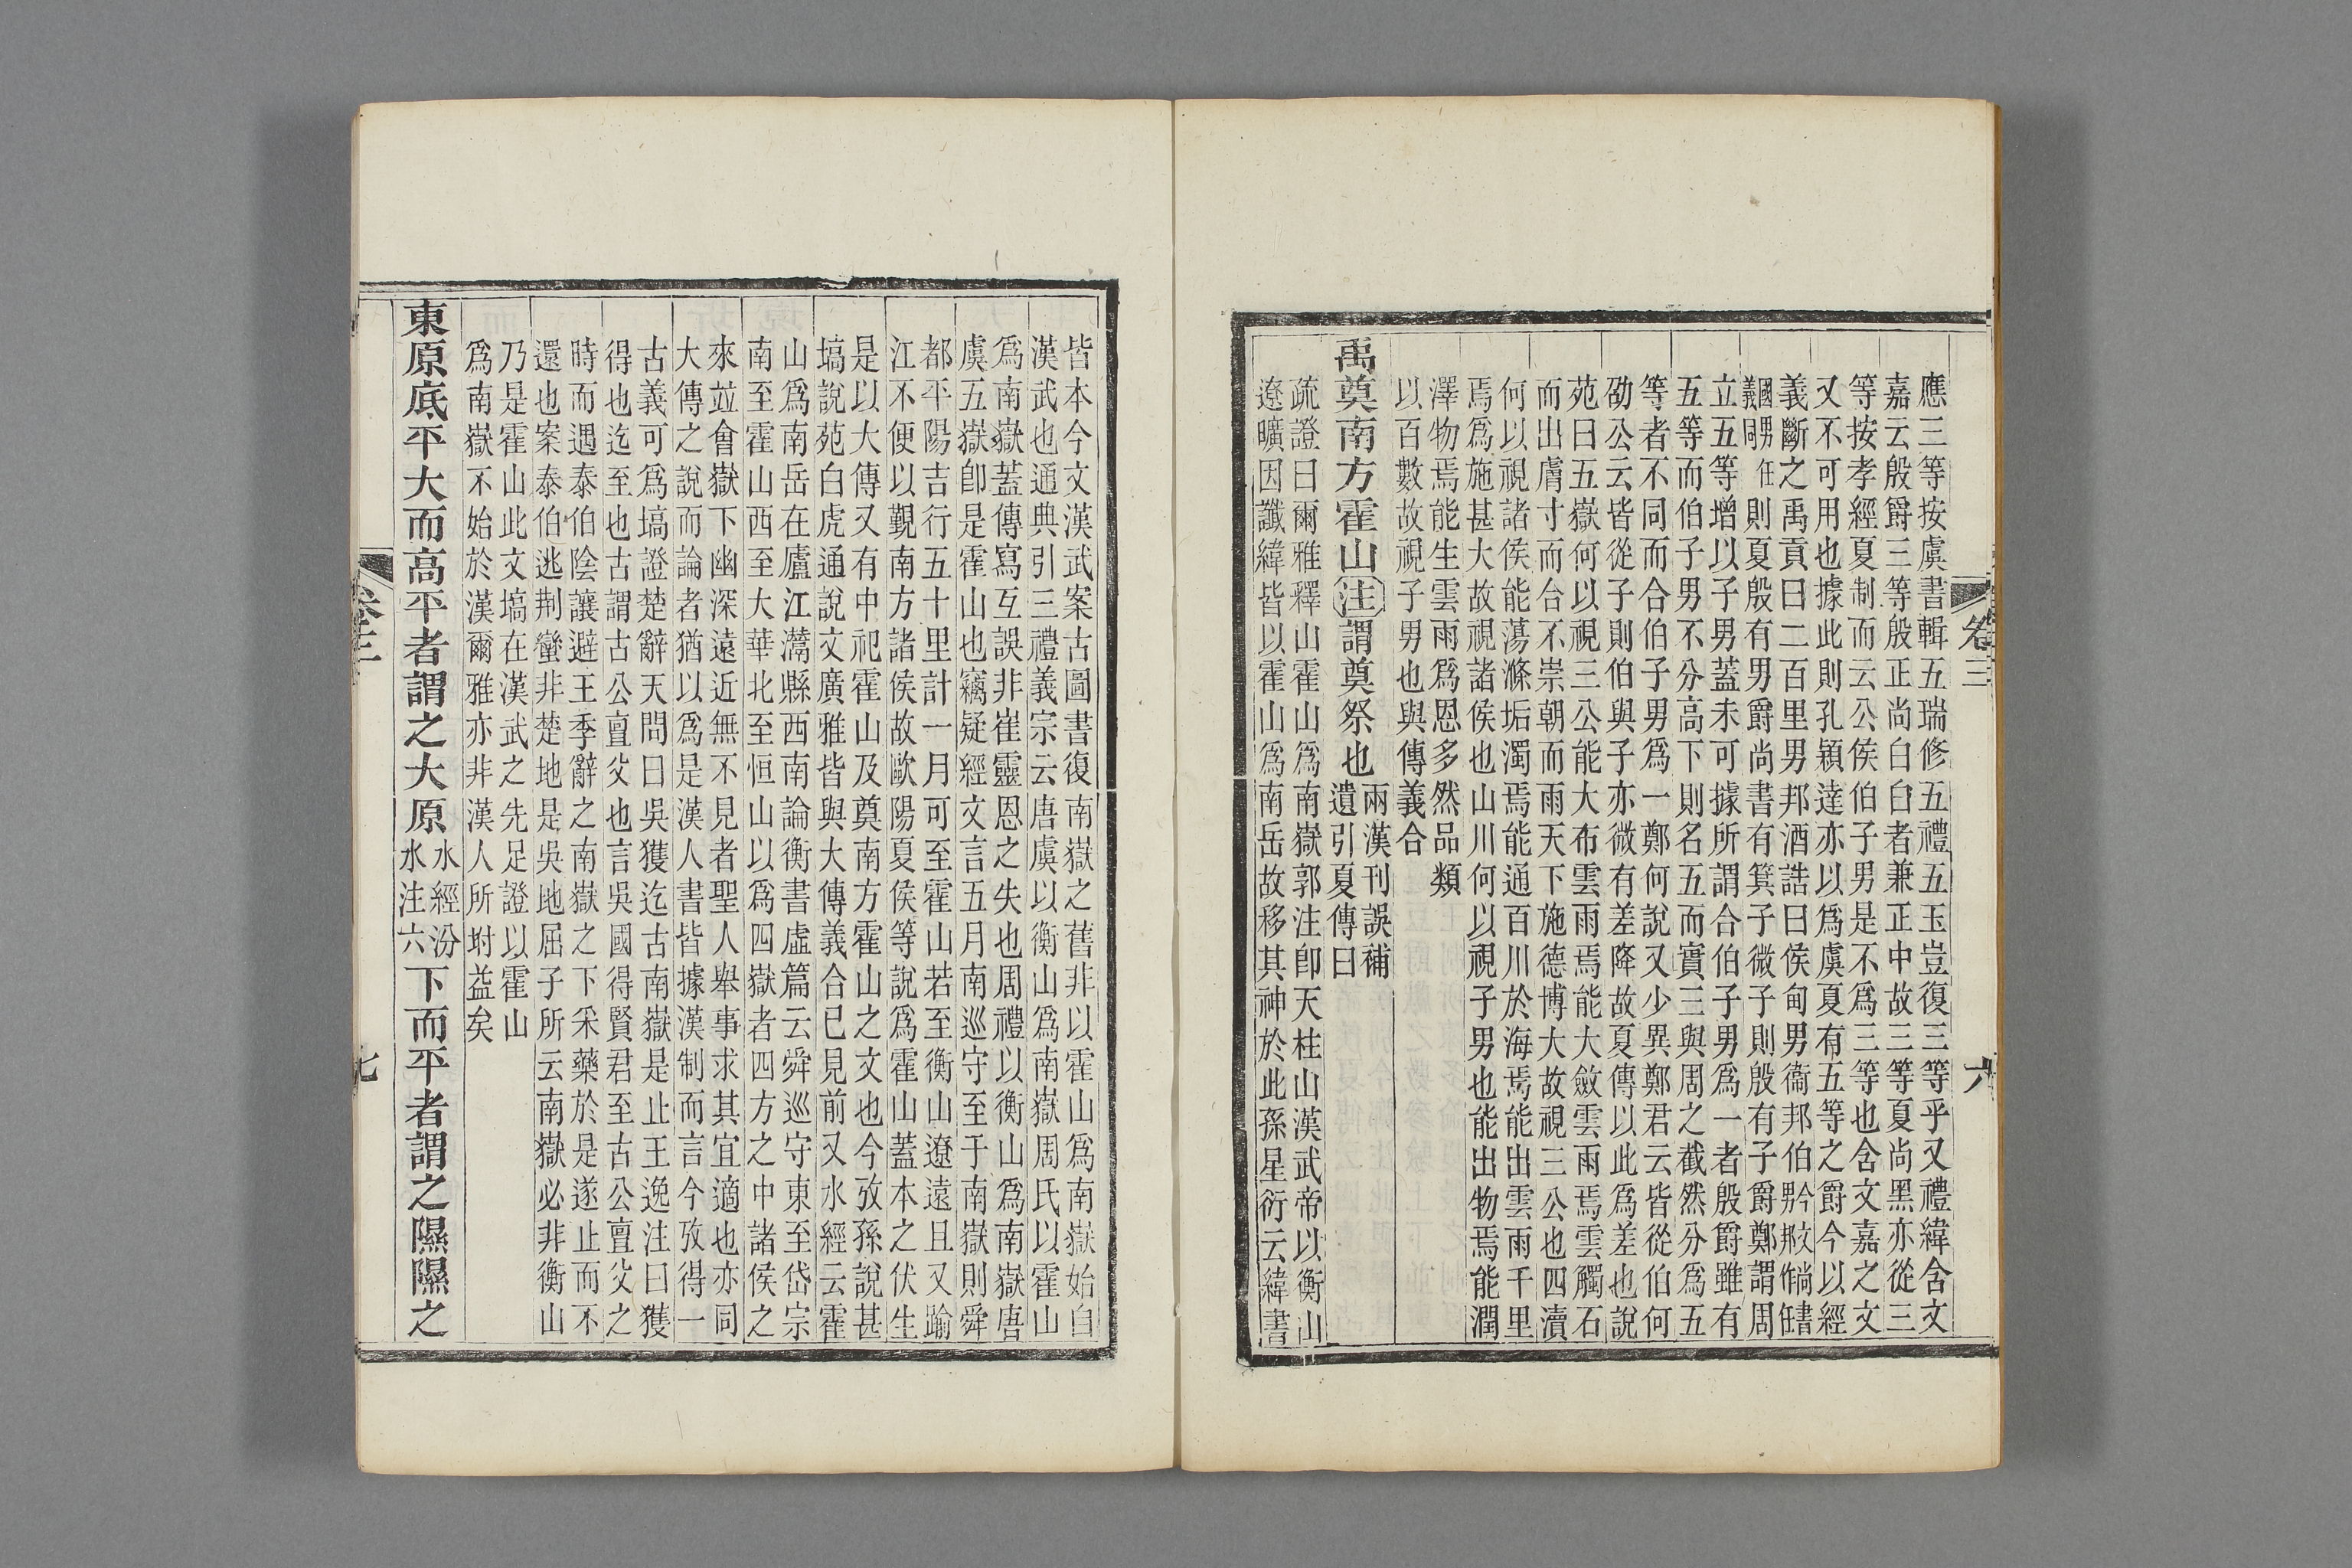 卷三
六
應三等按虞書輯五瑞修五禮五玉豈復三等乎又禮緯含文
嘉云殷爵三等殷正尚白白者兼正中故三等夏尚黑亦從三
等按孝經夏制而云公侯伯子男是不爲三等也含文嘉之文
又不可用也據此則孔穎達亦以爲虞夏有五等之爵今以經
義斷之禹貢曰二百里男邦酒誥曰侯甸男衞邦伯
國男任
義同
則夏殷有男爵尚書有箕子微子則殷有子爵鄭謂周
立五等增以子男蓋未可據所謂合伯子男爲一者殷爵雖有
五等而伯子男不分高下則名五而實三與周之截然分爲五
等者不同而合伯子男爲一鄭何說又少異鄭君云皆從伯何
劭公云皆從子則伯與子亦微有差降故夏傳以此爲差也說
苑曰五嶽何以視三公能大布雲雨焉能大斂雲雨焉雲觸石
而出膚寸而合不崇朝而雨天下施德博大故視三公也四瀆
何以視諸侯能蕩滌垢濁焉能通百川於海焉能出雲雨千里
焉爲施甚大故視諸侯也山川何以視子男也能出物焉能潤
澤物焉能生雲雨爲恩多然品類
以百數故視子男也與傳義合
禹奠南方霍山注謂奠祭也
兩漢刊誤補
遺引夏傳曰
疏證曰爾雅釋山霍山爲南嶽郭注卽天柱山漢武帝以衡山
遼曠因讖緯皆以霍山爲南岳故移其神於此孫星衍云緯書
皆本今文漢武案古圖書復南嶽之舊非以霍山爲南嶽始自
漢武也通典引三禮義宗云唐虞以衡山爲南嶽周氏以霍山
爲南嶽蓋傳寫互誤非崔靈恩之失也周禮以衡山爲南嶽唐
虞五嶽卽是霍山也竊疑經文言五月南巡守至于南嶽則舜
都平陽吉行五十里計一月可至霍山若至衡山遼遠且又踰
江不便以覲南方諸侯故歐陽夏侯等說爲霍山蓋本之伏生
是以大傳又有中祀霍山及奠南方霍山之文也今攷孫說甚
塙說苑白虎通說文廣雅皆與大傳義合已見前又水經云霍
山爲南岳在廬江灊縣西南論衡書虛篇云舜巡守東至岱宗
南至霍山西至大華北至恒山以爲四嶽者四方之中諸侯之
來竝會嶽下幽深遠近無不見者聖人舉事求其宜適也亦同
大傳之說而論者猶以爲是漢人書皆據漢制而言今攷得一
古義可爲塙證楚辭天問曰吳獲迄古南嶽是止王逸注曰獲
得也迄至也古謂古公亶父也言吳國得賢君至古公亶父之
時而遇泰伯陰讓避王季辭之南嶽之下采藥於是遂止而不
還也案泰伯逃荆蠻非楚地是吳地屈子所云南嶽必非衡山
乃是霍山此文塙在漢武之先足證以霍山
爲南嶽不始於漢爾雅亦非漢人所坿益矣
東原底平大而高平者謂之大原
水經汾
水注六
下而平者謂之隰隰之
卷三
七